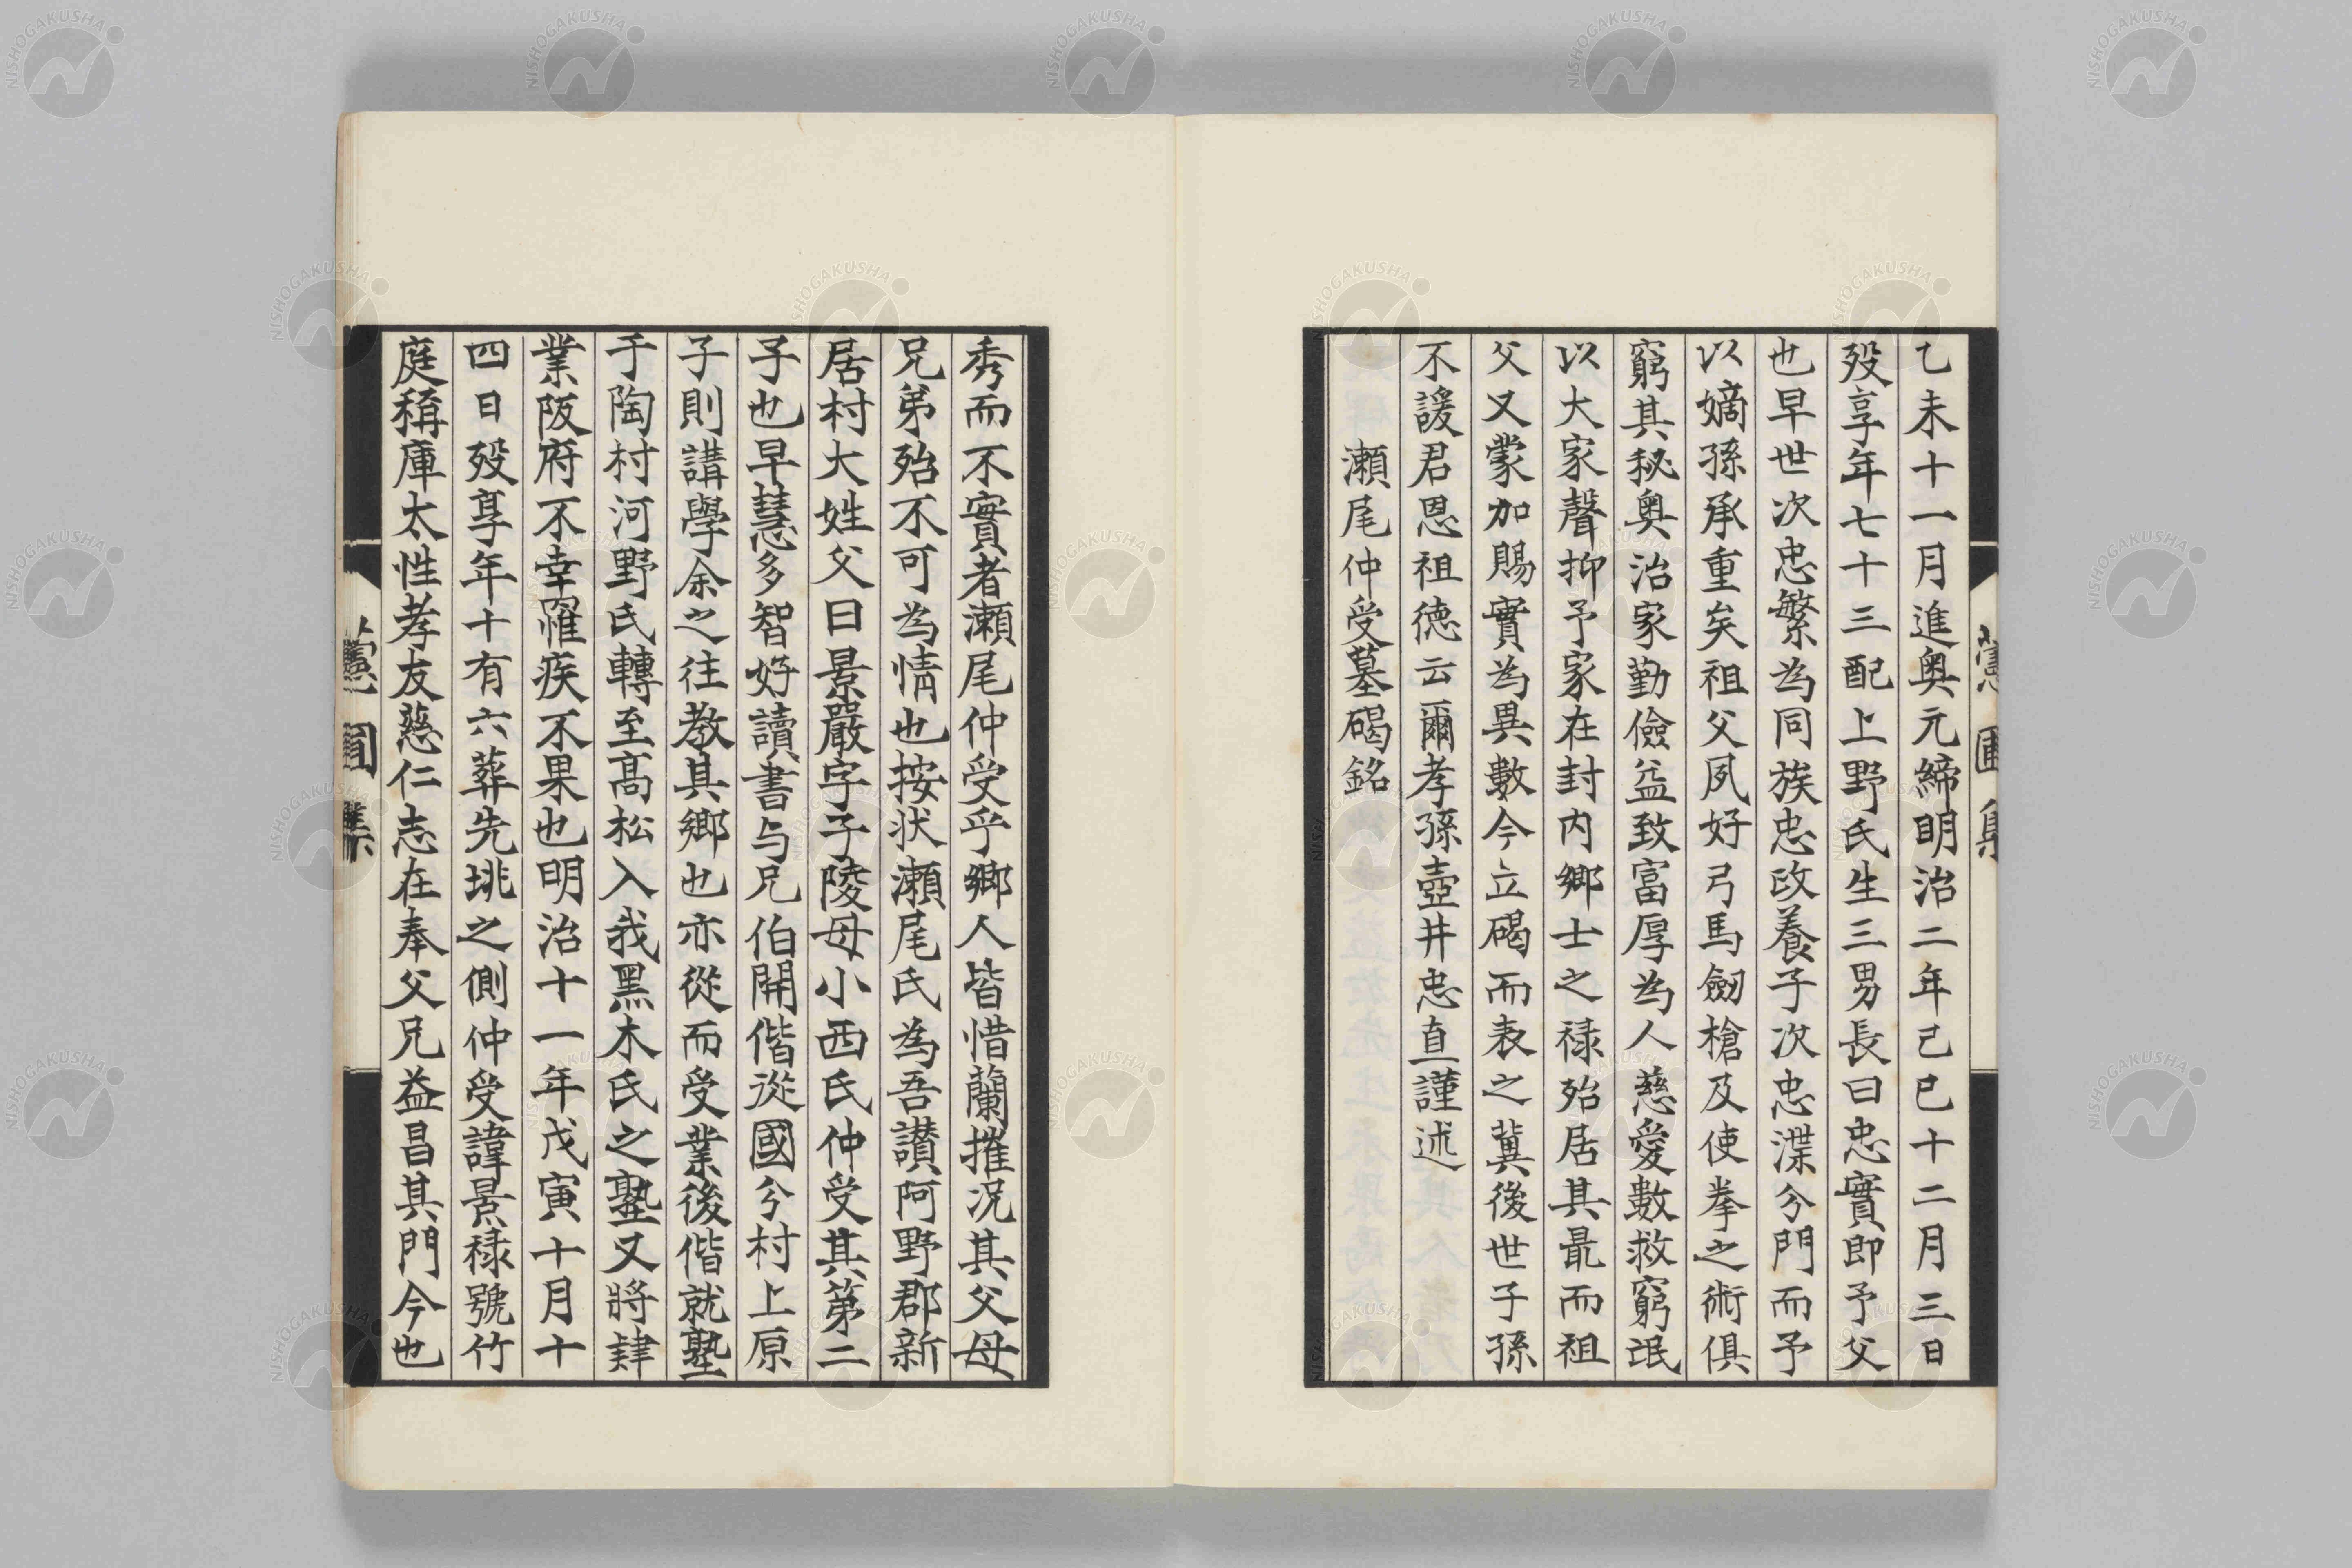 乙未十一月進奥元締明治二年己巳十二月三日
歿享年七十三配上野氏生三男長曰忠實即予父
也早世次忠繁為同族忠政養子次忠渫分門而予
以嫡孫承重矣祖父夙好弓馬劒槍及使拳之術俱
窮其秘奥治家勤儉益致富厚為人慈愛數救窮氓
以大家聲抑予家在封内郷士之禄殆居其最而祖
父又蒙加賜實為異數今立碣而表之冀後世子孫
不諼君恩祖徳云爾孝孫壺井忠直謹述
瀬尾仲受墓碣銘
秀而不實者瀬尾仲受乎郷人皆惜蘭摧况其父母
兄弟殆不可為情也按状瀬尾氏為吾讃阿野郡新
居村大姓父曰景嚴字子陵母小西氏仲受其第二
子也早慧多智好讀書与兄伯開偕從國分村上原
子則講學余之往教其郷也亦從而受業後偕就塾
于陶村河野氏轉至髙松入我黑木氏之塾又將肄
業阪府不幸罹疾不果也明治十一年戊寅十月十
四日歿享年十有六葬先垗之側仲受諱景禄號竹
庭稱庫太性孝友慈仁志在奉父兄益昌其門今也